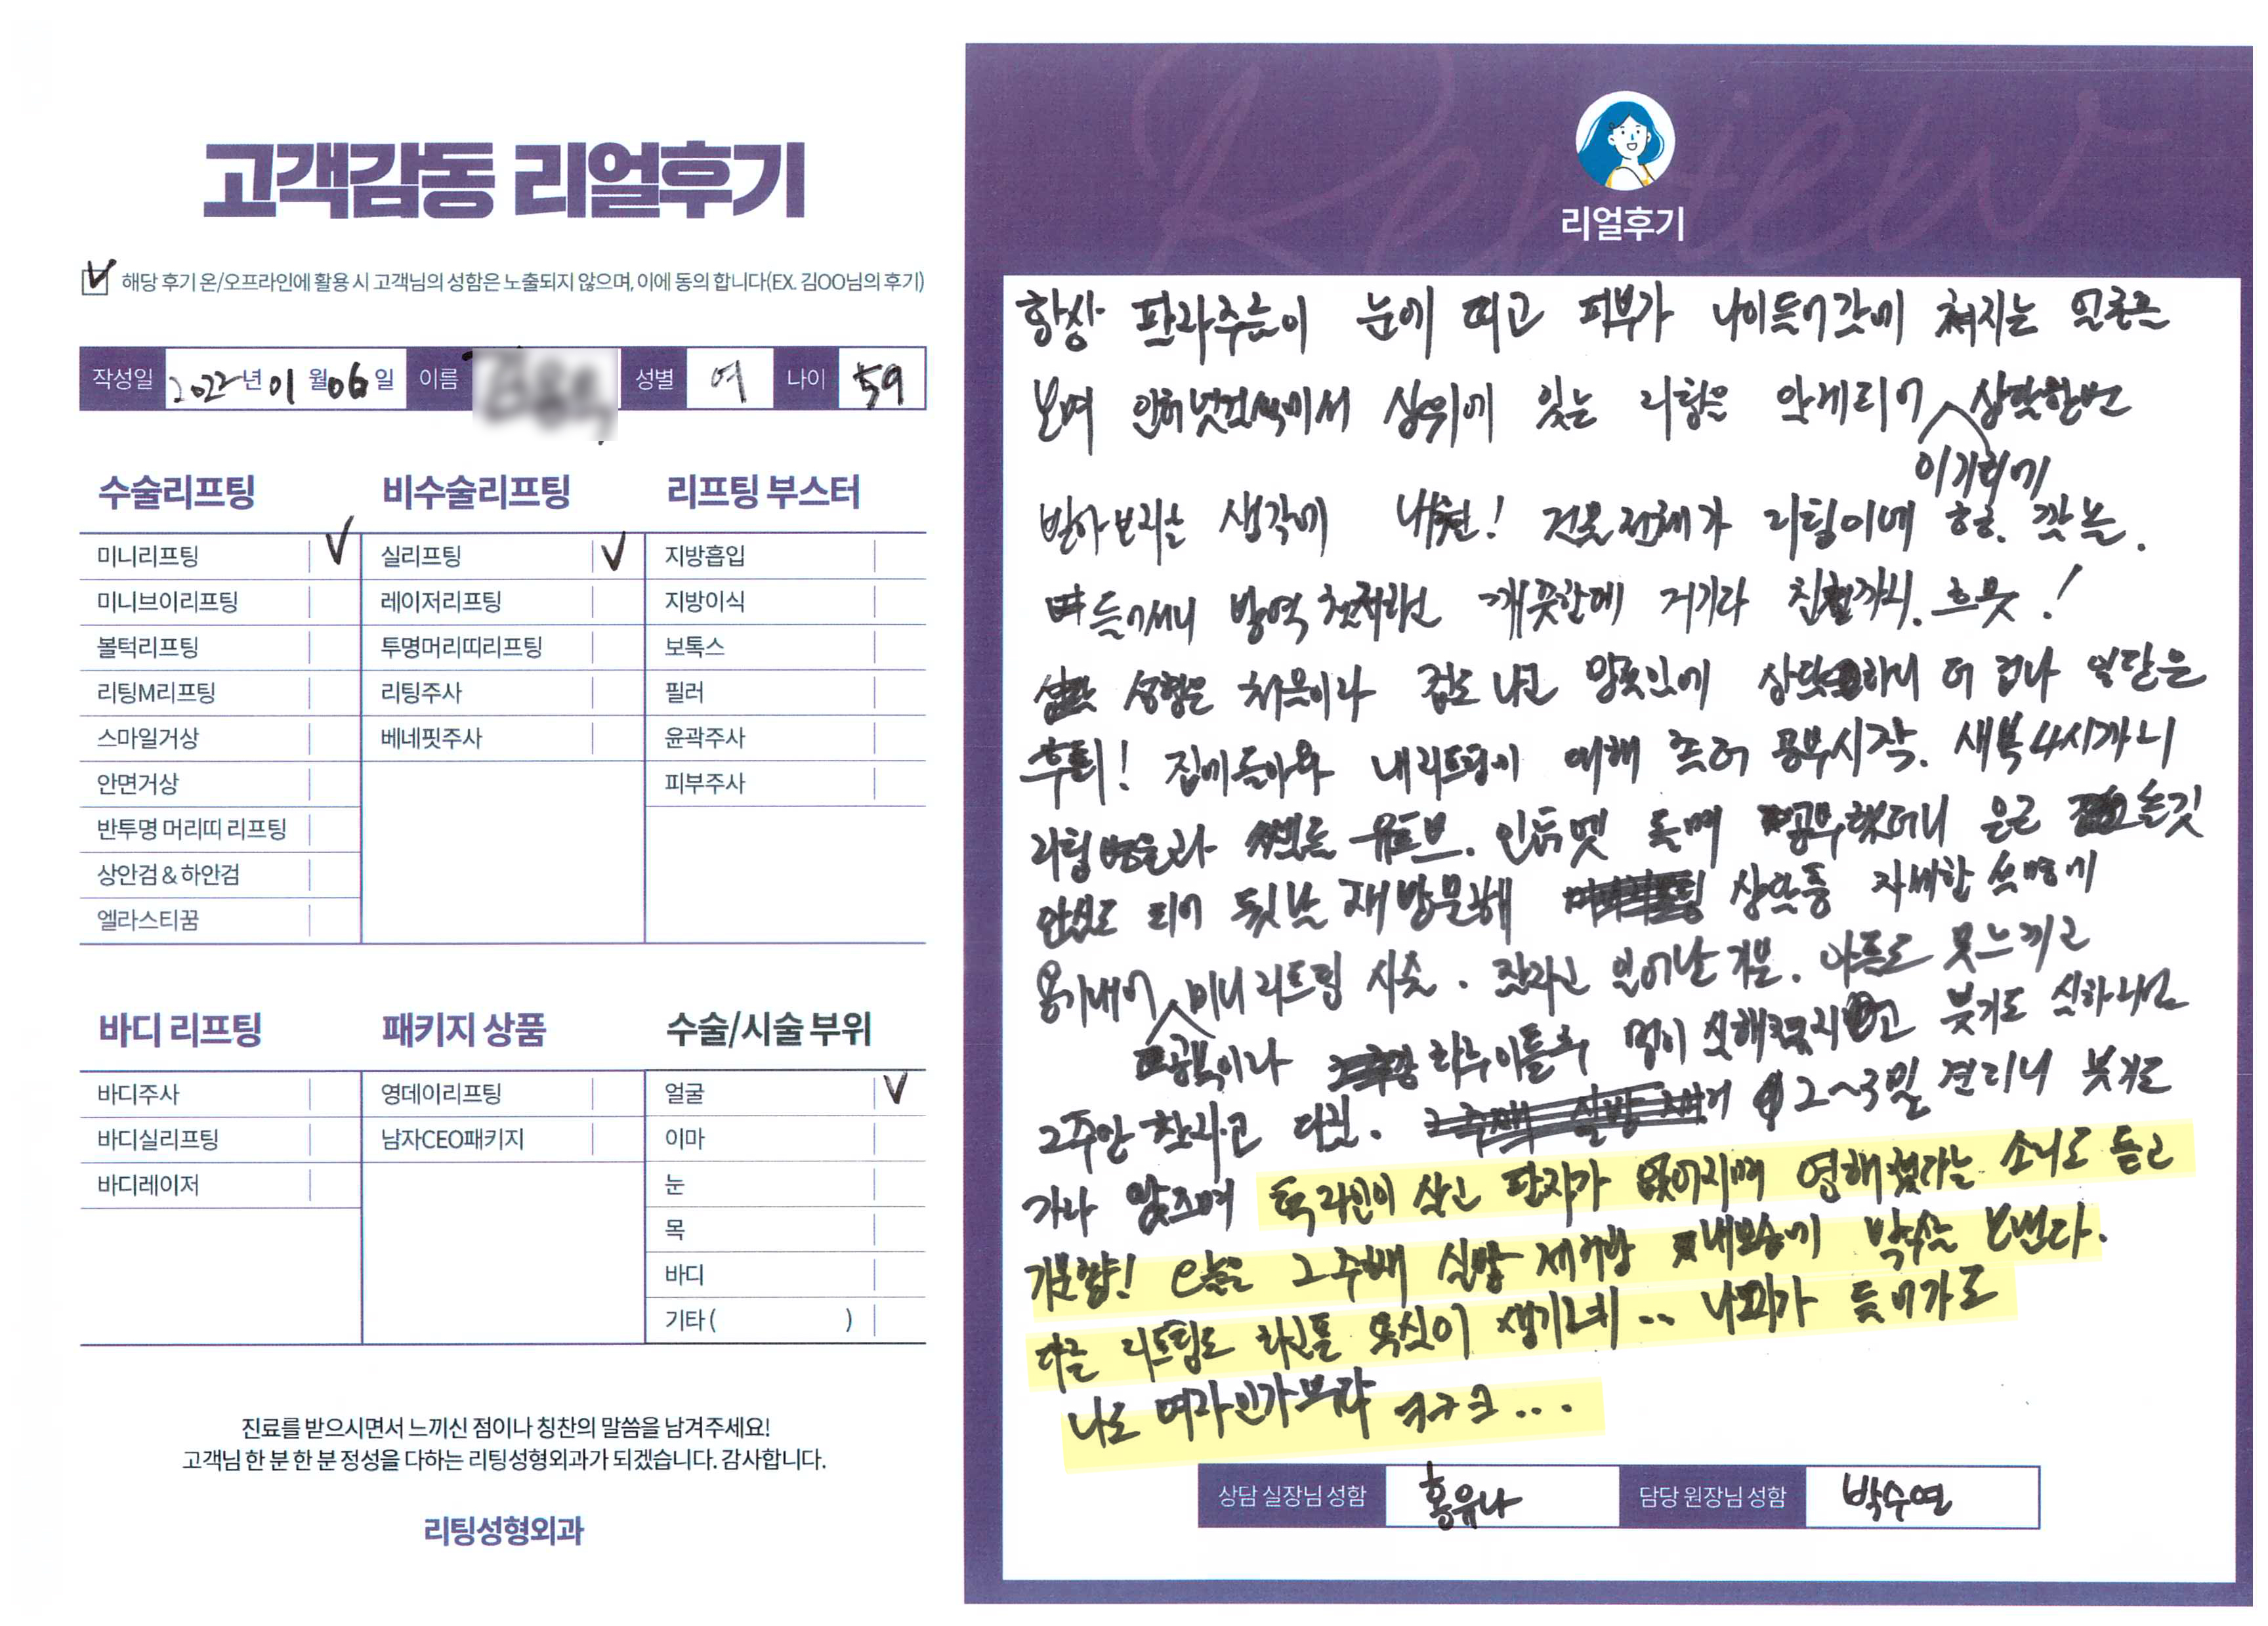 고객감동 리얼후기
해당 후기 온/오프라인에 활용 시 고객님의 성함은 노출되지 않으며, 이에 동의 합니다(EX. 김OO님의 후기)
작성일 2022년 01월 06일 이름 성별 여 나이 59
수술리프팅 비수술리프팅 리프팅 부스터
미니리프팅 실리프팅 지방흡입
미니브이리프팅 레이저리프팅 지방이식
볼턱리프팅 투명머리띠리프팅 보톡스
리팅M리프팅 리팅주사 필러
스마일거상 베네핏주사 윤곽주사
안면거상 피부주사
반투명 머리띠 리프팅
상안검 & 하안검
엘라스티꿈
바디 리프팅 패키지 상품 수술/시술 부위
바디주사 영데이리프팅 얼굴
바디실리프팅 남자CEO패키지 이마
바디레이저 눈
목
바디
기타( )
진료를 받으시면서 느끼신 점이나 칭찬의 말씀을 남겨주세요!
고객님 한 분 한 분 정성을 다하는 리팅성형외과가 되겠습니다. 감사합니다.
리팅성형외과
Review
리얼후기
항상 팔자주름이 눈에 띄고 피부가 나이들어감에 쳐지는 얼굴을
보며 상위에 있는 리팅을 알게되어 이기회에 상담한번
받아보려는 생각에 내원! 건물전체가 리팅이네 헐.
들어서니 방역 깨끗함에 거기다 친절까지. 흐뭇!
성형은 처음이라 겁도 나고 상담하니 더 겁나 일단은
후퇴! 집에돌아와 내리프팅에 대해 공부시작. 새벽4시까지
리팅 유튜브. 인터넷 돌며 공부했더니 은근 솔깃
안심도 되어 뒷날 재방문해 상담중 자세한 설명에
용기내어 미니리프팅 시술. 잠자고 일어난 기분. 아픔도 못느끼고
하루이틀후 멍이 붓기도 심하니
2주만 참자고 다짐. 2~3일 견디니 붓기도
가라앉으며 턱라인이 살고 팔자가 없어지며 영해졌다는 소리도 듣고
기분짱! 오늘은 2주째 실밥 제거함 내모습에 박수를 보낸다.
다른 리프팅도 하고픈 욕심이 생기네.. 나이가 들어가도
나도 여자인가보다 ㅋㅋㅋ...
상담 실장님 성함 홍유나 담당 원장님 성함 박수연